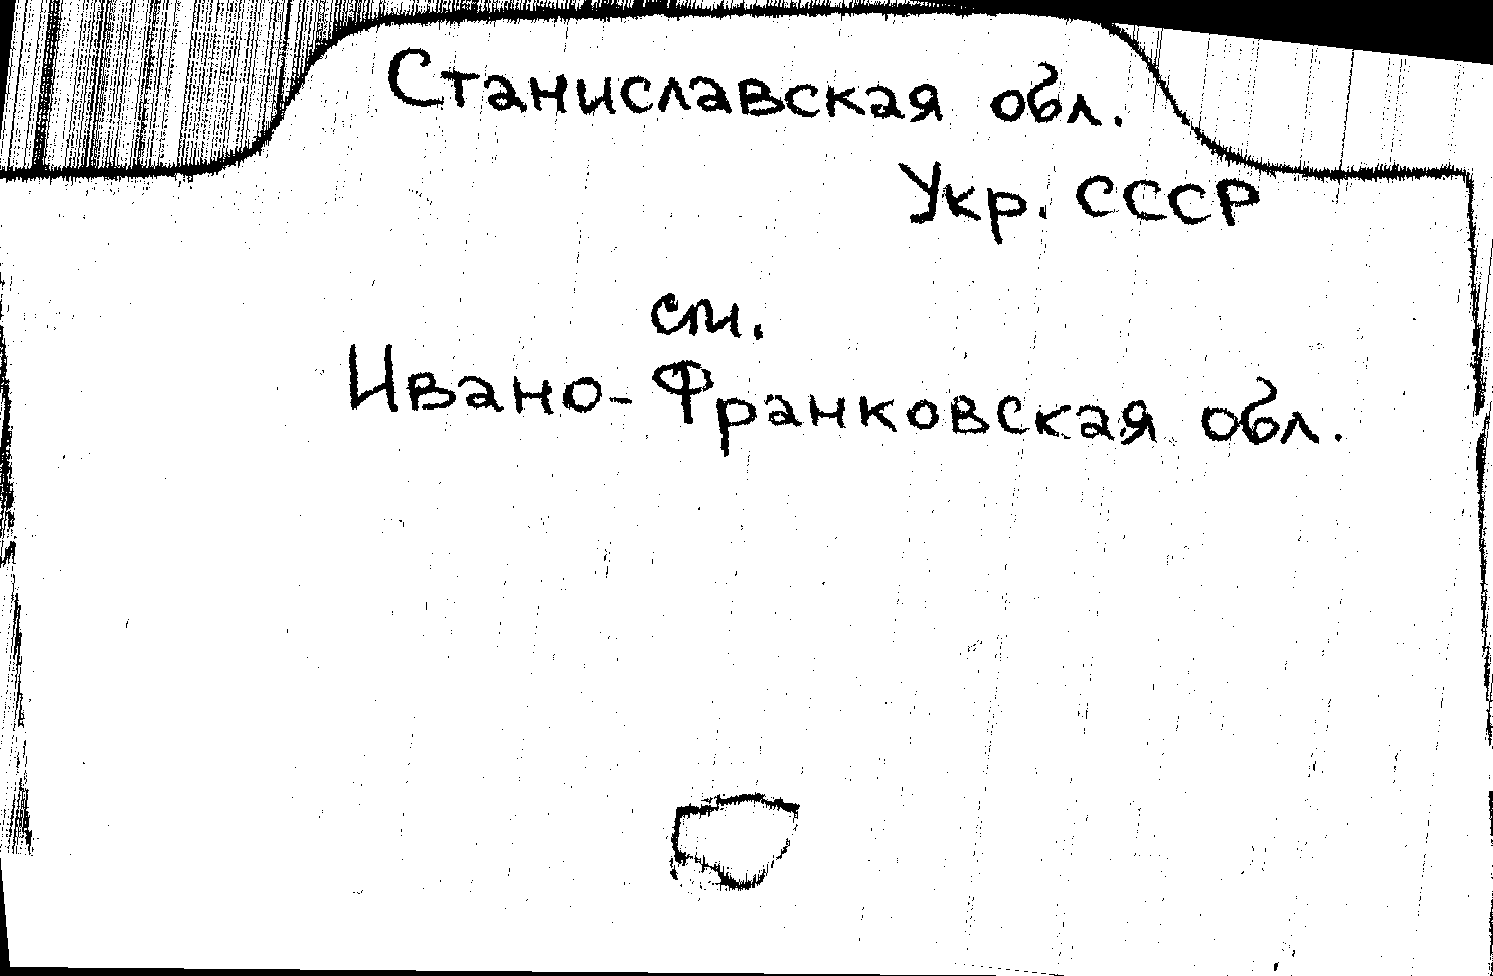 Станиславская обл.
Укр. СССР
см.
Ивано-Франковская обл.